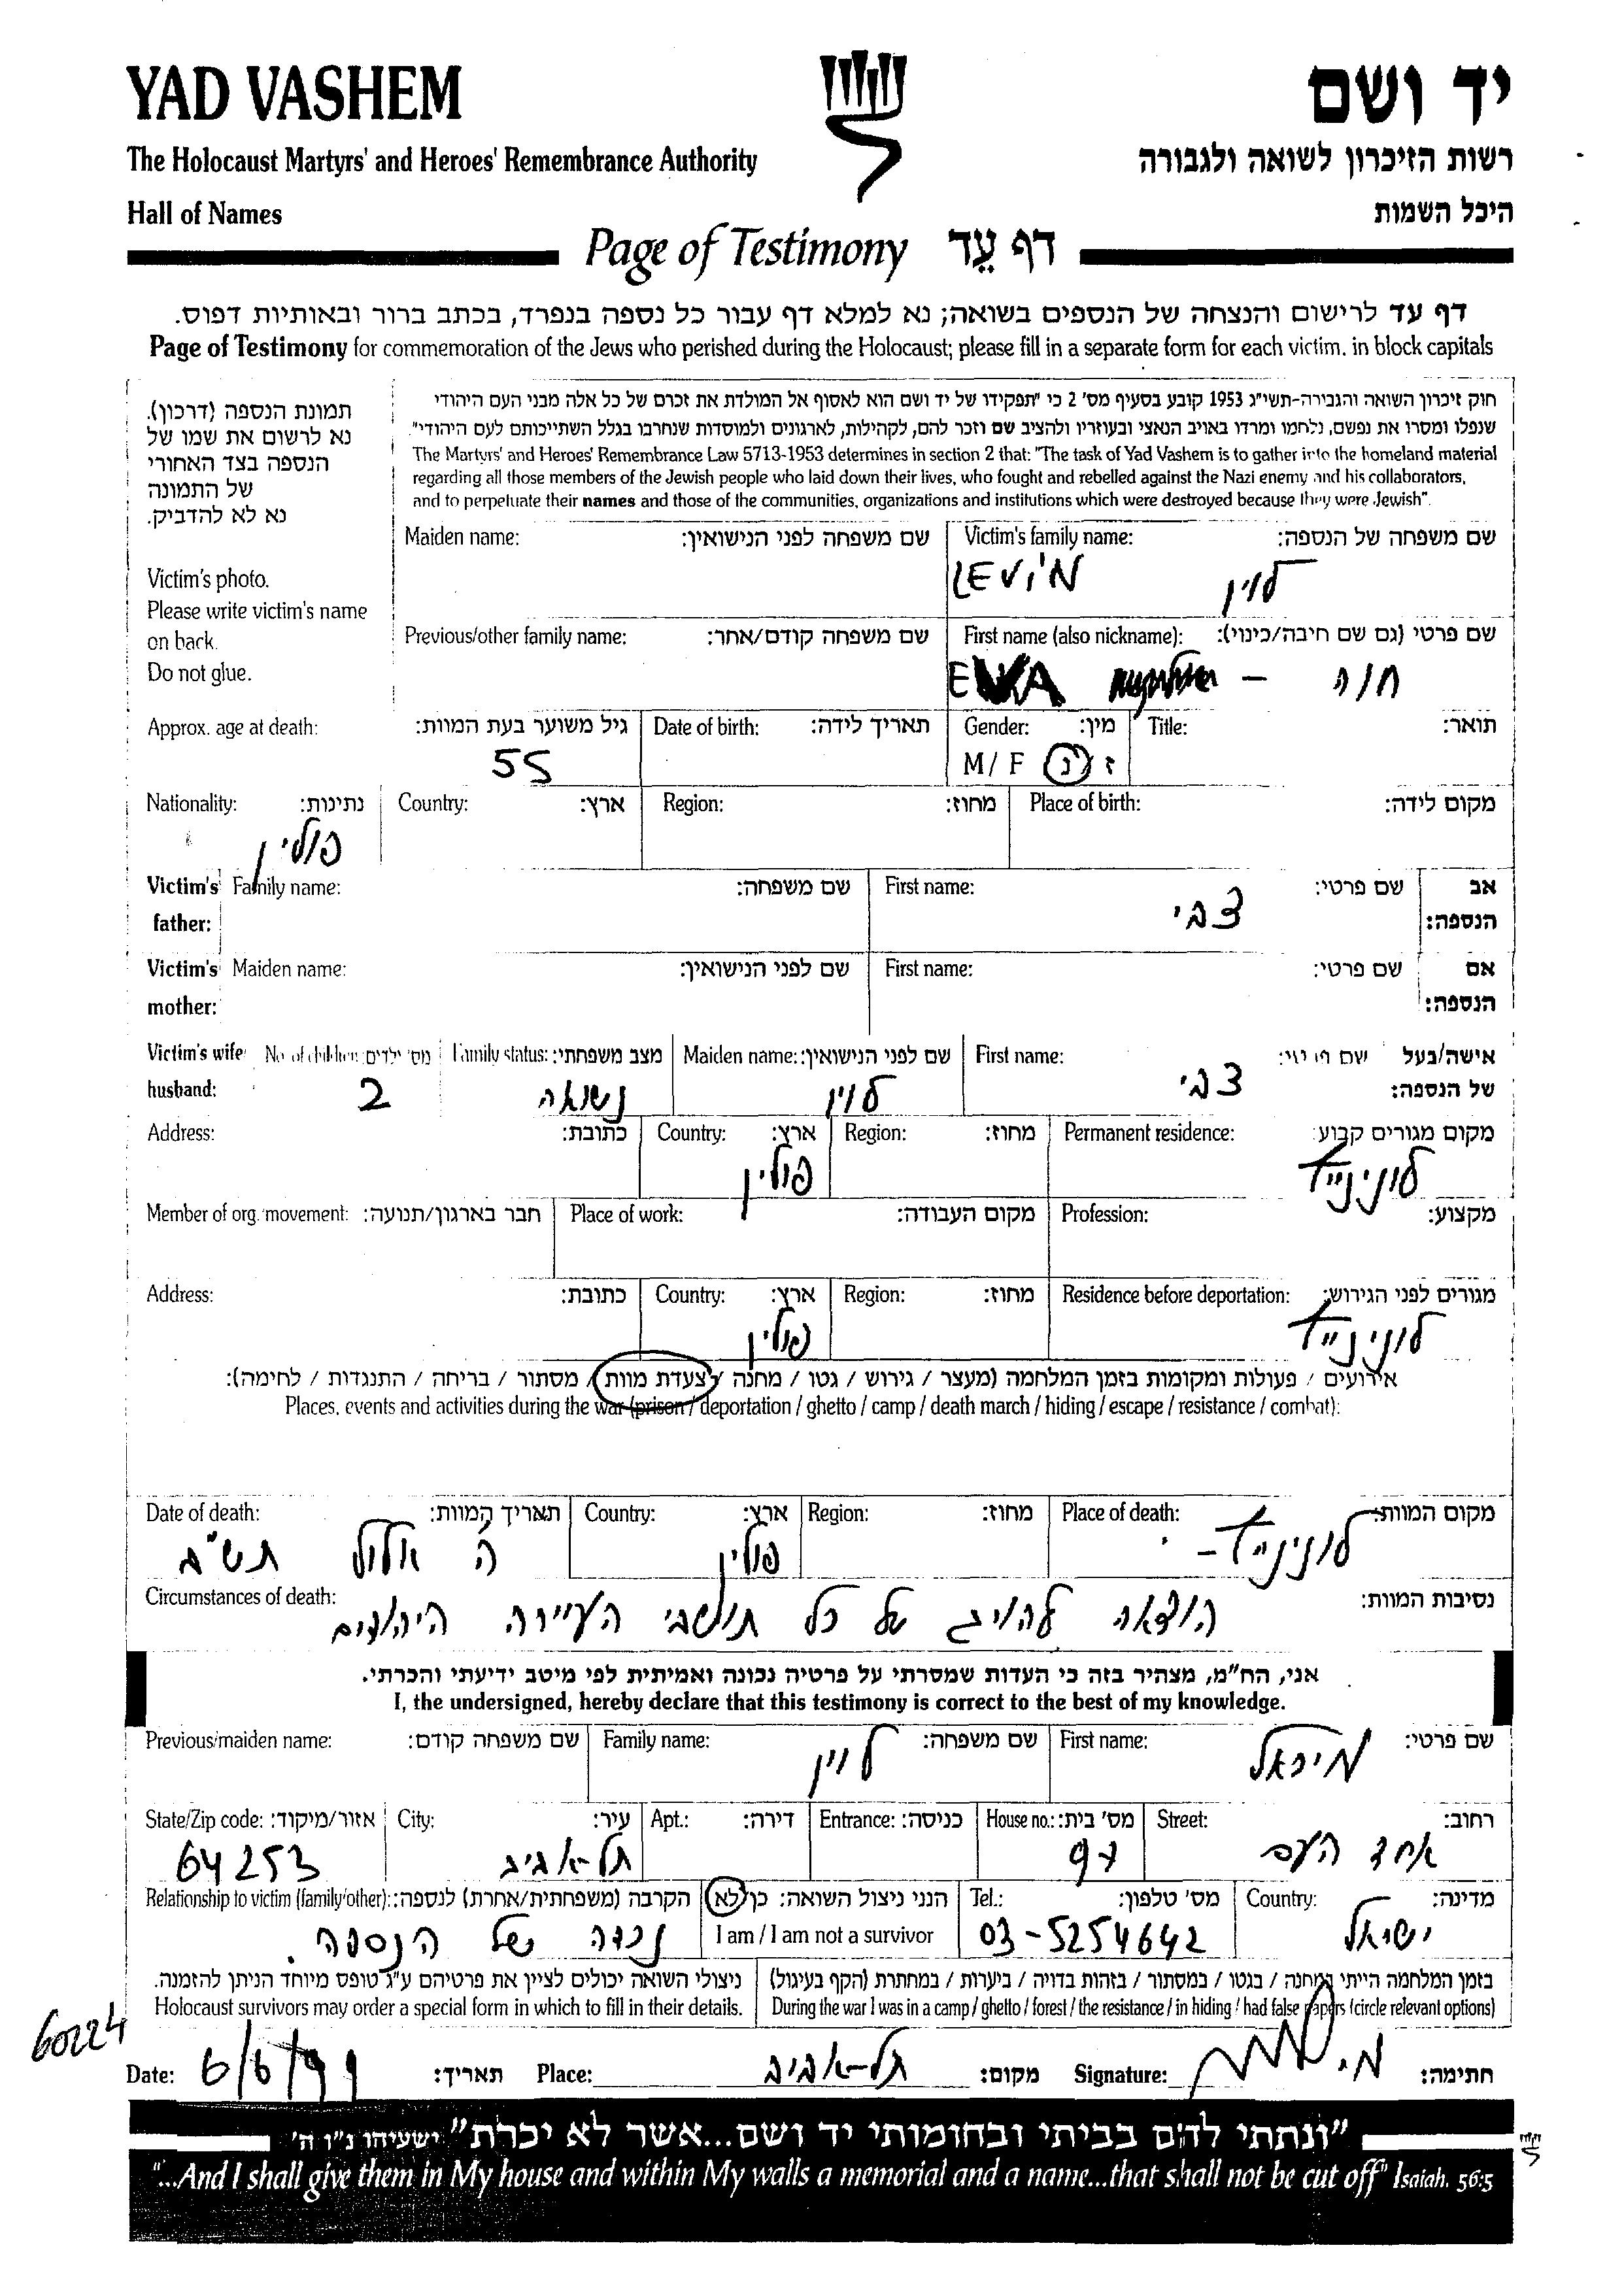 YAD VASHEM
יד ושם
The Holocaust Martyrs' and Heroes' Remembrance Authority
רשות הזיכרון לשואה ולגבורה
Hall of Names
היכל השמות
Page of Testimony דף עֵד
דף עד לרישום והנצחה של הנספים בשואה; נא למלא דף עבור כל נספה בנפרד, בכתב ברור ובאותיות דפוס.
Page of Testimony for commemoration of the Jews who perished during the Holocaust; please fill in a separate form for each victim, in block capitals
תמונת הנספה (דרכון).
נא לרשום את שמו של
הנספה בצד האחורי
של התמונה
נא לא להדביק.
Victim's photo.
Please write victim's name
on back.
Do not glue.
חוק זיכרון השואה והגבירה-תשי"ג 1953 קובע בסעיף מס' 2 כי "תפקידו של יד ושם הוא לאסוף אל המולדת את זכרם של כל אלה מבני העם היהודי
שנפלו ומסרו את נפשם, נלחמו ומרדו באויב הנאצי ובעוזריו ולהציב שם וזכר להם, לקהילות, לארגונים ולמוסדות שנחרבו בגלל השתייכותם לעם היהודי".
The Martyrs' and Heroes' Remembrance Law 5713-1953 determines in section 2 that: "The task of Yad Vashem is to gather into the homeland material
regarding all those members of the Jewish people who laid down their lives, who fought and rebelled against the Nazi enemy and his collaborators,
and to perpetuate their names and those of the communities, organizations and institutions which were destroyed because they were Jewish".
Maiden name: שם משפחה לפני הנישואין: Victim's family name: שם משפחה של הנספה:
לוין
Previous/other family name: שם משפחה קודם/אחר: First name (also nickname): שם פרטי (גם שם חיבה/כינוי):
EWA – חוה
Approx. age at death: גיל משוער בעת המוות: Date of birth: תאריך לידה: Gender: מין: Title: תואר:
55 M/ F ז / נ
Nationality: נתינות: Country: ארץ: Region: מחוז: Place of birth: מקום לידה:
פולין
Victim's Family name: שם משפחה: First name: שם פרטי: אב
father: צבי הנספה:
Victim's Maiden name: שם לפני הנישואין: First name: שם פרטי: אם
mother: הנספה:
Victim's wife No. of children: מס' ילדים: Family status: מצב משפחתי: Maiden name: שם לפני הנישואין: First name: שם פרטי: אישה/בעל
husband: 2 נשואה לוין צבי של הנספה:
Address: כתובת: Country: ארץ: Region: מחוז: Permanent residence: מקום מגורים קבוע:
פולין לונינייץ
Member of org./movement: חבר בארגון/תנועה: Place of work: מקום העבודה: Profession: מקצוע:
Address: כתובת: Country: ארץ: Region: מחוז: Residence before deportation: מגורים לפני הגירוש:
פולין לונינייץ
אירועים / פעולות ומקומות בזמן המלחמה (מעצר / גירוש / גטו / מחנה / צעדת מוות / מסתור / בריחה / התנגדות / לחימה):
Places, events and activities during the war (prison / deportation / ghetto / camp / death march / hiding / escape / resistance / combat):
Date of death: תאריך המוות: Country: ארץ: Region: מחוז: Place of death: מקום המוות:
ה' אלול תש"ב פולין לונינייץ
Circumstances of death: נסיבות המוות:
הוצאה להורג של כל תושבי העיירה היהודים
אני, הח"מ, מצהיר בזה כי העדות שמסרתי על פרטיה נכונה ואמיתית לפי מיטב ידיעתי והכרתי.
I, the undersigned, hereby declare that this testimony is correct to the best of my knowledge.
Previous/maiden name: שם משפחה קודם: Family name: שם משפחה: First name: שם פרטי:
לוין
State/Zip code: אזור/מיקוד: City: עיר: Apt.: דירה: Entrance: כניסה: House no.: מס' בית: Street: רחוב:
64253 תל-אביב 97 אחד העם
Relationship to victim (family/other): הקרבה (משפחתית/אחרת) לנספה: הנני ניצול השואה: כן / לא Tel.: מס' טלפון: Country: מדינה:
נכדה של הנספה. I am / I am not a survivor 03-5254642 ישראל
ניצולי השואה יכולים לציין את פרטיהם ע"ג טופס מיוחד הניתן להזמנה. בזמן המלחמה הייתי במחנה / בגטו / במסתור / בזהות בדויה / ביערות / במחתרת (הקף בעיגול)
Holocaust survivors may order a special form in which to fill in their details. During the war I was in a camp / ghetto / forest / the resistance / in hiding / had false papers (circle relevant options)
60224
Date: 6/6/99 תאריך: Place: תל-אביב מקום: Signature: חתימה:
"ונתתי להם בביתי ובחומותי יד ושם...אשר לא יכרת" ישעיהו נ"ו ה'
"...And I shall give them in My house and within My walls a memorial and a name...that shall not be cut off" Isaiah. 56:5